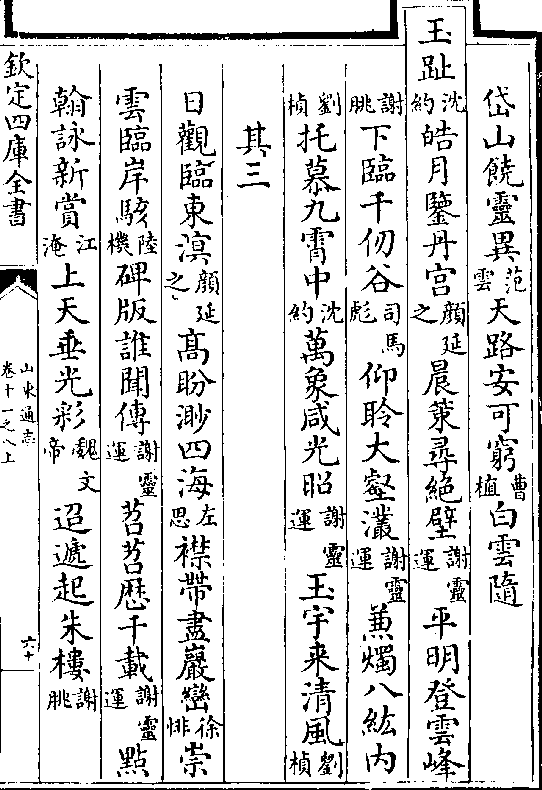 岱山饒靈異范雲天路安可窮曹植白雲隨
玉趾沈約皓月鑒丹宫顔延之晨䇿尋絶壁謝靈運平明登雲峰
謝朓下臨千仞谷司馬彪仰聆大壑灇謝靈運兼燭八紘内
劉楨托慕九霄中沈約萬象咸光昭謝靈運玉宇来清風劉楨
其三
日觀臨東溟顔延之高盼渺四海左思襟帶盡巖巒徐悱崇
雲臨岸駭陸機碑版誰聞傳謝靈運苕苕歴千載謝靈運點
翰詠新賞江淹上天垂光彩魏文帝迢遞起朱樓謝朓
欽定四庫全書
山東通志
卷十一之八上
六十